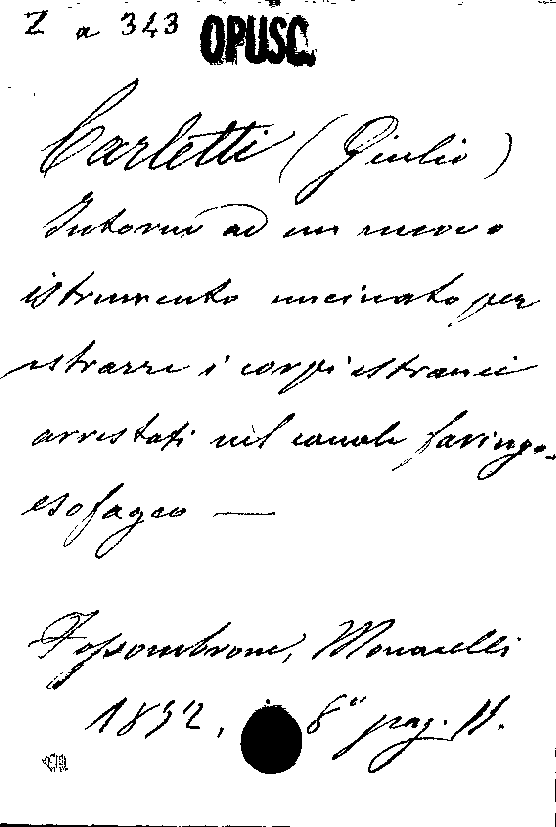 Z a 343 OPUSC.
Carletti (Giulio)
Intorno ad un nuovo
istrumento uncinato per
estrarre i corpi estranei
arrestati nel canale faringo-
esofageo —
Fossombrone, Monacelli
8° pag. 11.